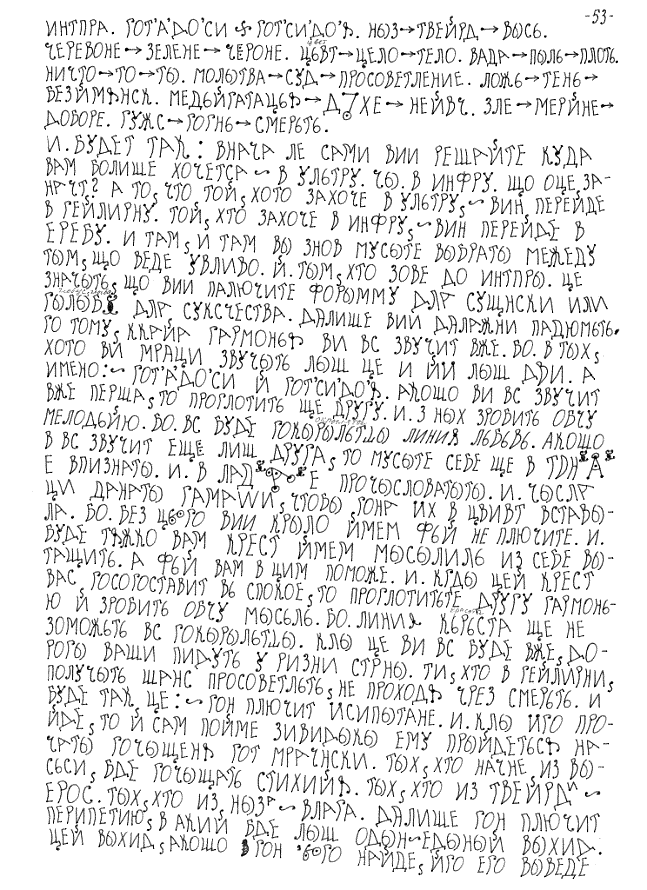 -53-
ИНТПРА. ГОТ'А'ДО'СИ ГОТ'СИ'ДО'Я. НЫЗ→ТВЕЙРД→ВЫСЬ.
ЧЕРЕВОНЕ→ЗЕЛЕНЕ→ЧЕРОНЕ. ЦЬВТ→ЦЕЛО→ТЕЛО. ВАДА→ПЫЛЬ→ПЛОТЬ.
НИЧТО→ТО→ТЫ. МОЛЫТВА→СУД→ПРОСОВЕТЛЕНИЕ. ЛОЖЬ→ТЕНЬ→
БЕЗИМЯНСК. →НЕЙВЧ. ЗЛЕ→МЕРІЙНЕ→
ДОБОРЕ. ГУЖС→ГОРНЬ→СМЕРЬТЬ.
И. БУДЕТ ТАК: ВНАЧА ЛЕ САМИ ВИИ РЕШАЙТЕ КУДА
ВАМ БОЛИЩЕ ХОЧЕТСА ~ В УЛЬТРУ. ЧЫ. В ИНФРУ. ЩО ОЦЕ ЗА-
НАЧТ? А ТО, ЧТО ТОЙ, ХОТО ЗАХОЧЕ В УЛЬТРУ, ~ ВИН ПЕРЕЙДЕ
В ГЕЙЛИРНУ. ТОЙ, ХТО ЗАХОЧЕ В ИНФРУ, ~ ВИН ПЕРЕЙДЕ В
ЕРЕБУ. И ТАМ, И ТАМ ВЫ ЗНОВ МУСЫТЕ ВЫБРАТЫ МЕЖЕДУ
ТЫМ, ЩО ВЕДЕ УВЛИВО. Й. ТЫМ, ХТО ЗОВЕ ДО ИНТПРЫ. ЦЕ
ЗНАЧЫТЬ, ЩО ВИИ ПАЛЮЧИТЕ ФОРЫММУ ДЛЯ СУЩНСКИ ИЛИ
ДЛЯ СУКСЧЕСТВА. ДАЛИЩЕ ВИИ ДАЛАЖНИ ПАДЮМЬТЬ.
ГО ТОМУ, ККАЙА ГАРМОНЬЯ ВИ ВС ЗВУЧИТ ВЖЕ. ВО. В ТЫХ,
ХОТО ВИ МРАЦИ ЗВУЧЫТЬ ЛЫШ ЦЕ И ИИ ЛЫШ ДВИ. А
ИМЕНО: ~ ГОТ'А'ДО'СИ Й ГОТ'СИ'ДО'Я. АКОЩО ВИ ВС ЗВУЧИТ
ВЖЕ ПЕРША, ТО ПРОГЛОТИТЬ ЩЕ ДРУГУ. И. З НЫХ ЗРОБИТЬ ОВЧУ
МЕЛОДЬИЮ. ВО. ВС БУДЕ ЛИНИЯ ЛЬВЬВЬ. АКОЩО
В ВС ЗВУЧИТ ЕЩЕ ЛИШ ДРУГА, ТО МУСЫТЕ СЕБЕ ЩЕ В
Е ВПИЗНАТЫ. И. В ПРОЧЫСЛОВАТЫТЫ. И. ЧЫСЛА
ЦИ ДАНАТЫ ГАМАМИ, ЧТОБЫ ГОНА ИХ В ЦВИВТ ВСТАВЫ-
ЛА. ВО. БЕЗ ЦЬОГО ВИИ КРЫЛО ИМЕМ ФЬЙ НЕ ПЛЮЧИТЕ. И.
БУДЕ ТЯЖКО ВАМ КРЕСТ ИМЕМ МЫСЫЛИЛЬ ИЗ СЕБЕ ВЫ-
ТАЩИТЬ. А ФЬЙ ВАМ В ЦИМ ПОМОЖЕ. И. КГДЫ ЦЕЙ КРЕСТ
ВАС, ГОСОГОСТАВИТ ВЬ СПОКОЕ, ТО ПРОГЛОТИТЬТЕ ДРУГУ ГАРМОНЬ-
Ю Й ЗРОБИТЬ ОВЧУ МЫСЬЛЬ. ВО. ЛИНИЯ КЬРЬСТА ЩЕ НЕ
ЗОМОЖЬТЬ ВС КЛЫ ЦЕ ВИ ВС БУДЕ ВЖЕ, ДО-
РОГЫ ВАШИ ПИДУТЬ У РИЗНИ СТРНЫ. ТИ, ХТО В ГЕЙЛИРНИ,
ПОЛУЧЫТЬ ШАНС ПРОСОВЕТЛЬТЬ, НЕ ПРОХОДЯ ЧРЕЗ СМЕРЬТЬ. И
БУДЕ ТАК ЦЕ: ~ ГОН ПЛЮЧИТ ИСИПЫТАНЕ. И. КЛЫ ИГО ПРО-
ЙДЕ, ТО Й САМ ПОЙМЕ ЗИВИДЫКЫ ЕМУ ПРЫЙДЕТЬСЯ НА-
ЧАТЫ ГОЧЫЩЕНЯ ГОТ МРАЧНСКИ. ТЫХ, ХТО НАЧНЕ, ИЗ ВЫ-
СЬСИ, ВДЕ ГОЧЫЩАТЬ СТИХИЙЯ. ТЫХ, ХТО ИЗ ТВЕЙРДА ~
ЕРОС. ТЫХ, ХТО ИЗ НЫЗА ~ ВЛАГА. ДАЛИЩЕ ГОН ПЛЮЧИТ
ПЕРИПЕТИЮ, В АКИЙ ВДЕ ЛЫШ ОДЫН~ЕДЫНЫЙ ВЫХИД.
ЦЕЙ ВЫХИД, АКОЩО ГОН НАЙДЕ, ИГО ЕГО ВЫВЕДЕ